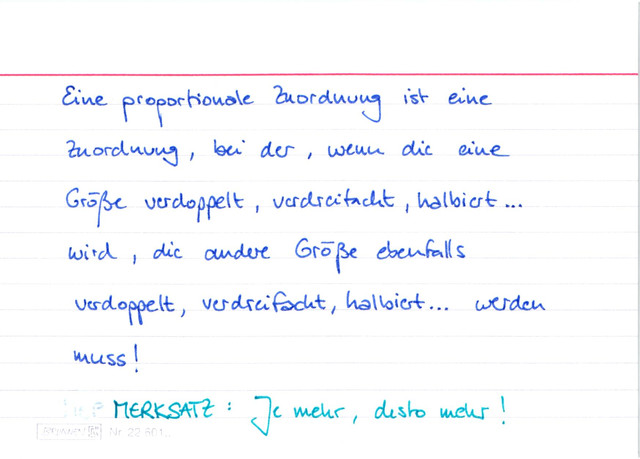 Eine proportionale Zuordnung ist eine
Zuordnung, bei der, wenn die eine
Größe verdoppelt, verdreifacht, halbiert...
wird, die andere Größe ebenfalls
verdoppelt, verdreifacht, halbiert... werden
muss!
MERKSATZ: Je mehr, desto mehr!
Nr.